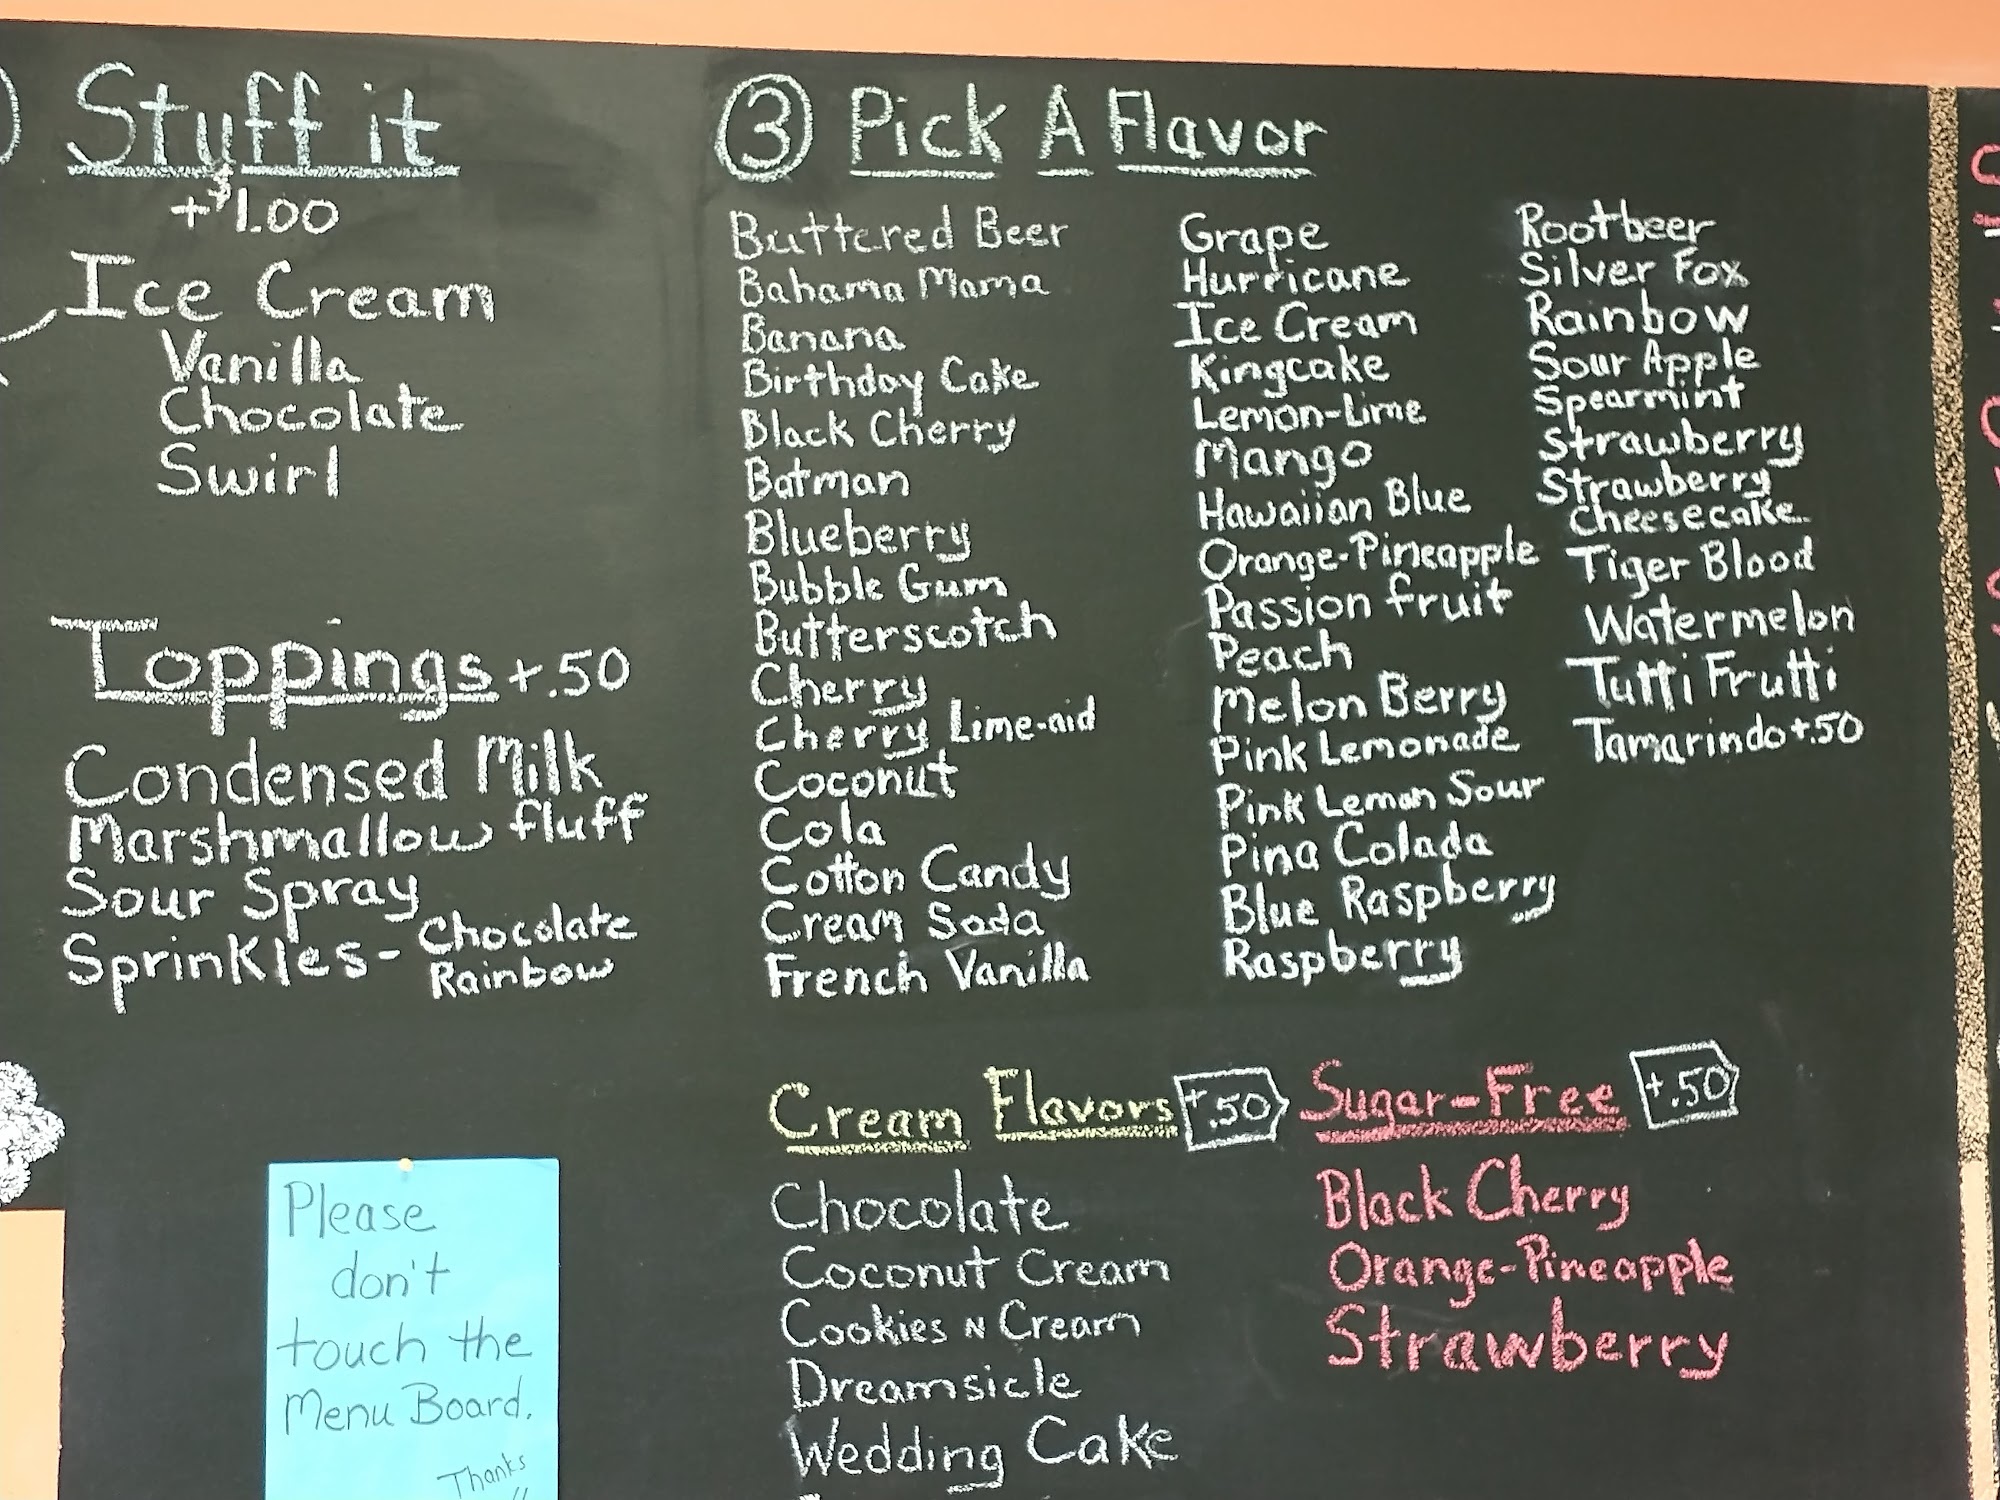 Stuff it
+$1.00
Ice Cream
Vanilla
Chocolate
Swirl
Toppings +.50
Condensed Milk
Marshmallow fluff
Sour Spray
Sprinkles- Chocolate
Rainbow
Please
don't
touch the
Menu Board.
Thanks
3 Pick A Flavor
Buttered Beer
Bahama Mama
Banana
Birthday Cake
Black Cherry
Batman
Blueberry
Bubble Gum
Butterscotch
Cherry
Cherry Lime-aid
Coconut
Cola
Cotton Candy
Cream Soda
French Vanilla
Grape
Hurricane
Ice Cream
Kingcake
Lemon-Lime
Mango
Hawaiian Blue
Orange-Pineapple
Passion fruit
Peach
Melon Berry
Pink Lemonade
Pink Lemon Sour
Pina Colada
Blue Raspberry
Raspberry
Rootbeer
Silver Fox
Rainbow
Sour Apple
Spearmint
Strawberry
Strawberry
Cheesecake
Tiger Blood
Watermelon
Tutti Frutti
Tamarindo +.50
Cream Flavors +.50
Chocolate
Coconut Cream
Cookies N Cream
Dreamsicle
Wedding Cake
Sugar-Free +.50
Black Cherry
Orange-Pineapple
Strawberry